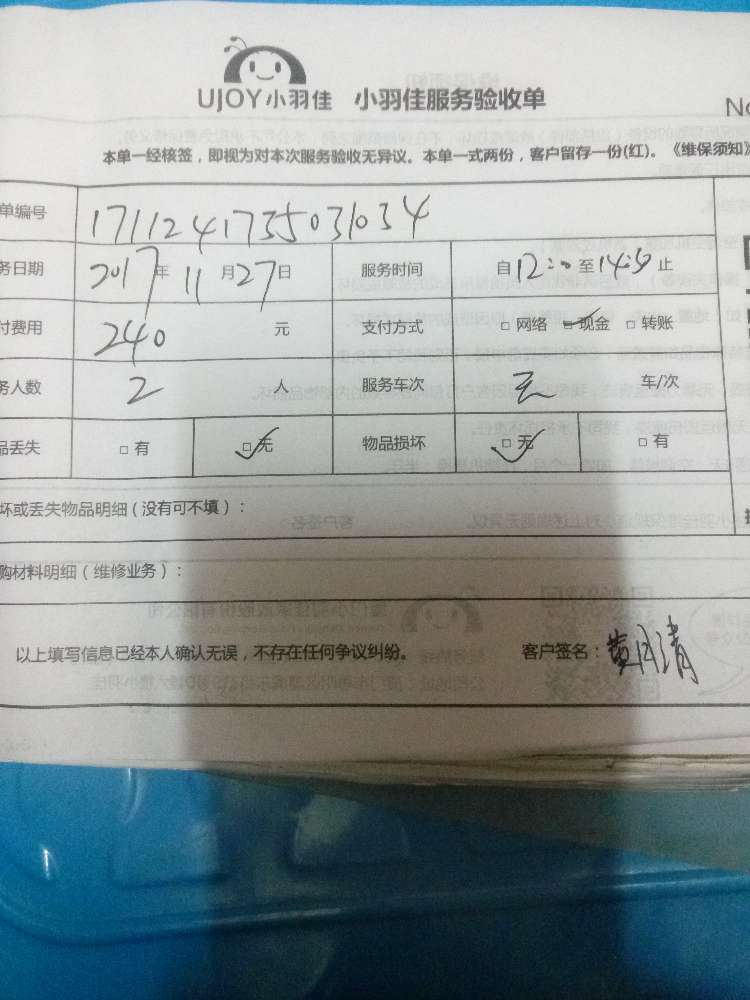 UJOY小羽佳 小羽佳服务验收单
No
本单一经核签，即视为对本次服务验收无异议。本单一式两份，客户留存一份(红)。《维保须知》
单编号 1711241735031034
务日期 2017年 11 月27日 服务时间 自12:00至 止
付费用 240 元 支付方式 □ 网络 □ 现金 □ 转账
务人数 2 人 服务车次 无 车/次
品丢失 □ 有 □ 无 物品损坏 □ 无 □ 有
坏或丢失物品明细（没有可不填）：
购材料明细（维修业务）：
以上填写信息已经本人确认无误，不存在任何争议纠纷。 客户签名：黄月清